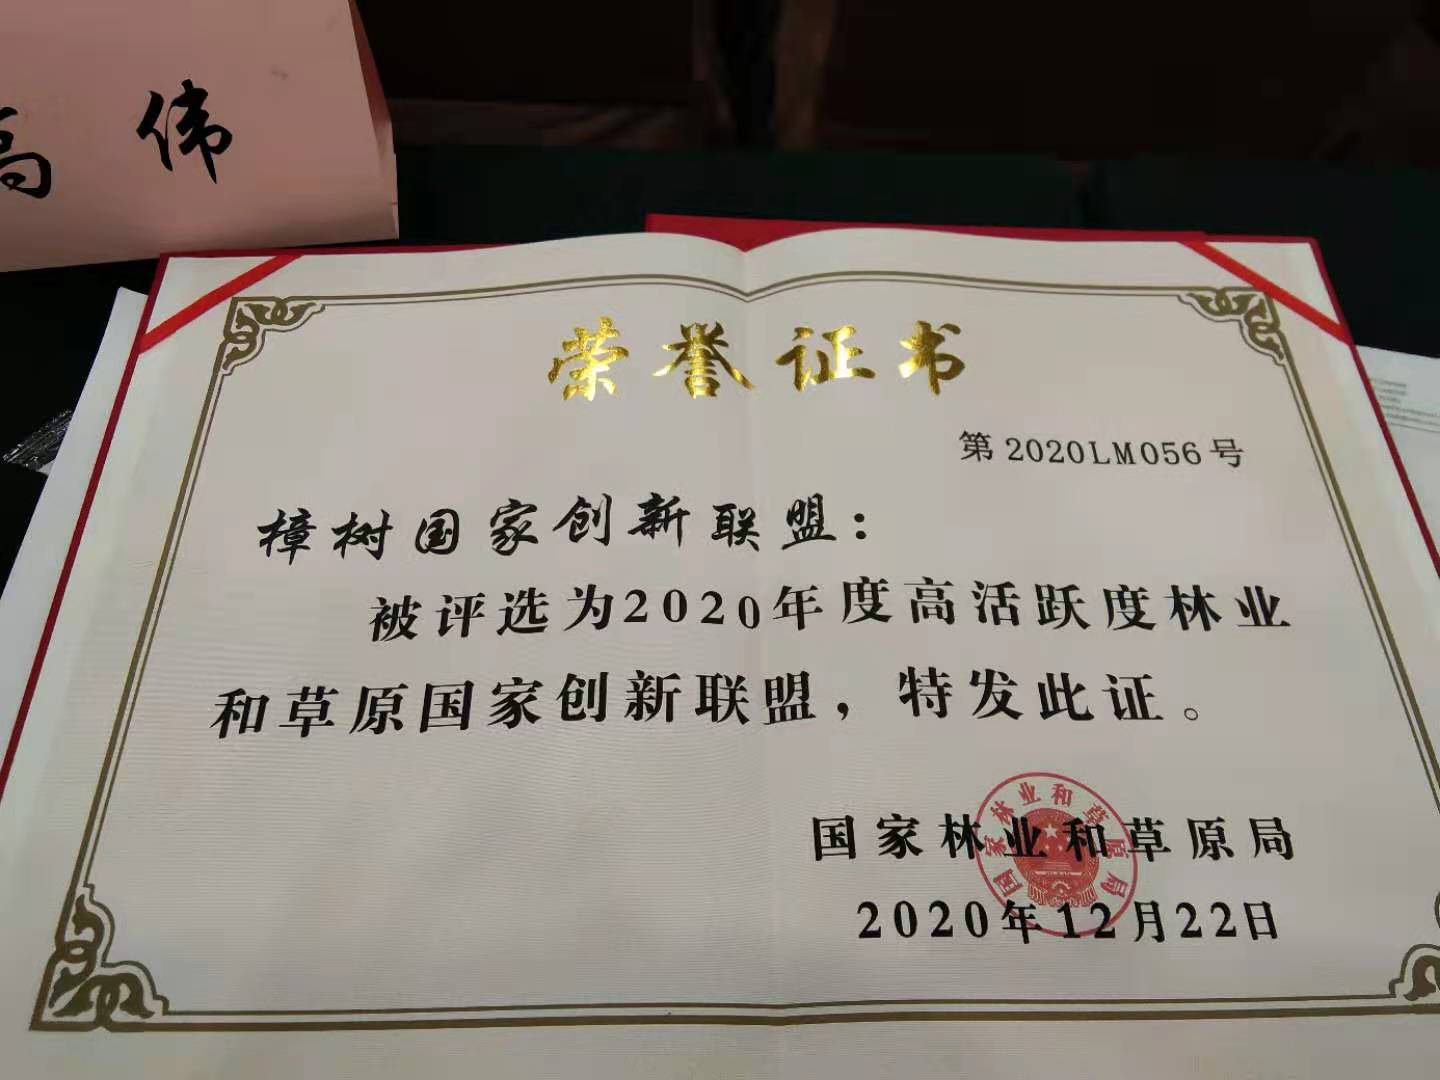 高伟
荣誉证书
第2020LM056号
樟树国家创新联盟：
被评选为2020年度高活跃度林业
和草原国家创新联盟，特发此证。
国家林业和草原局
国家林业和草原局
2020年12月22日